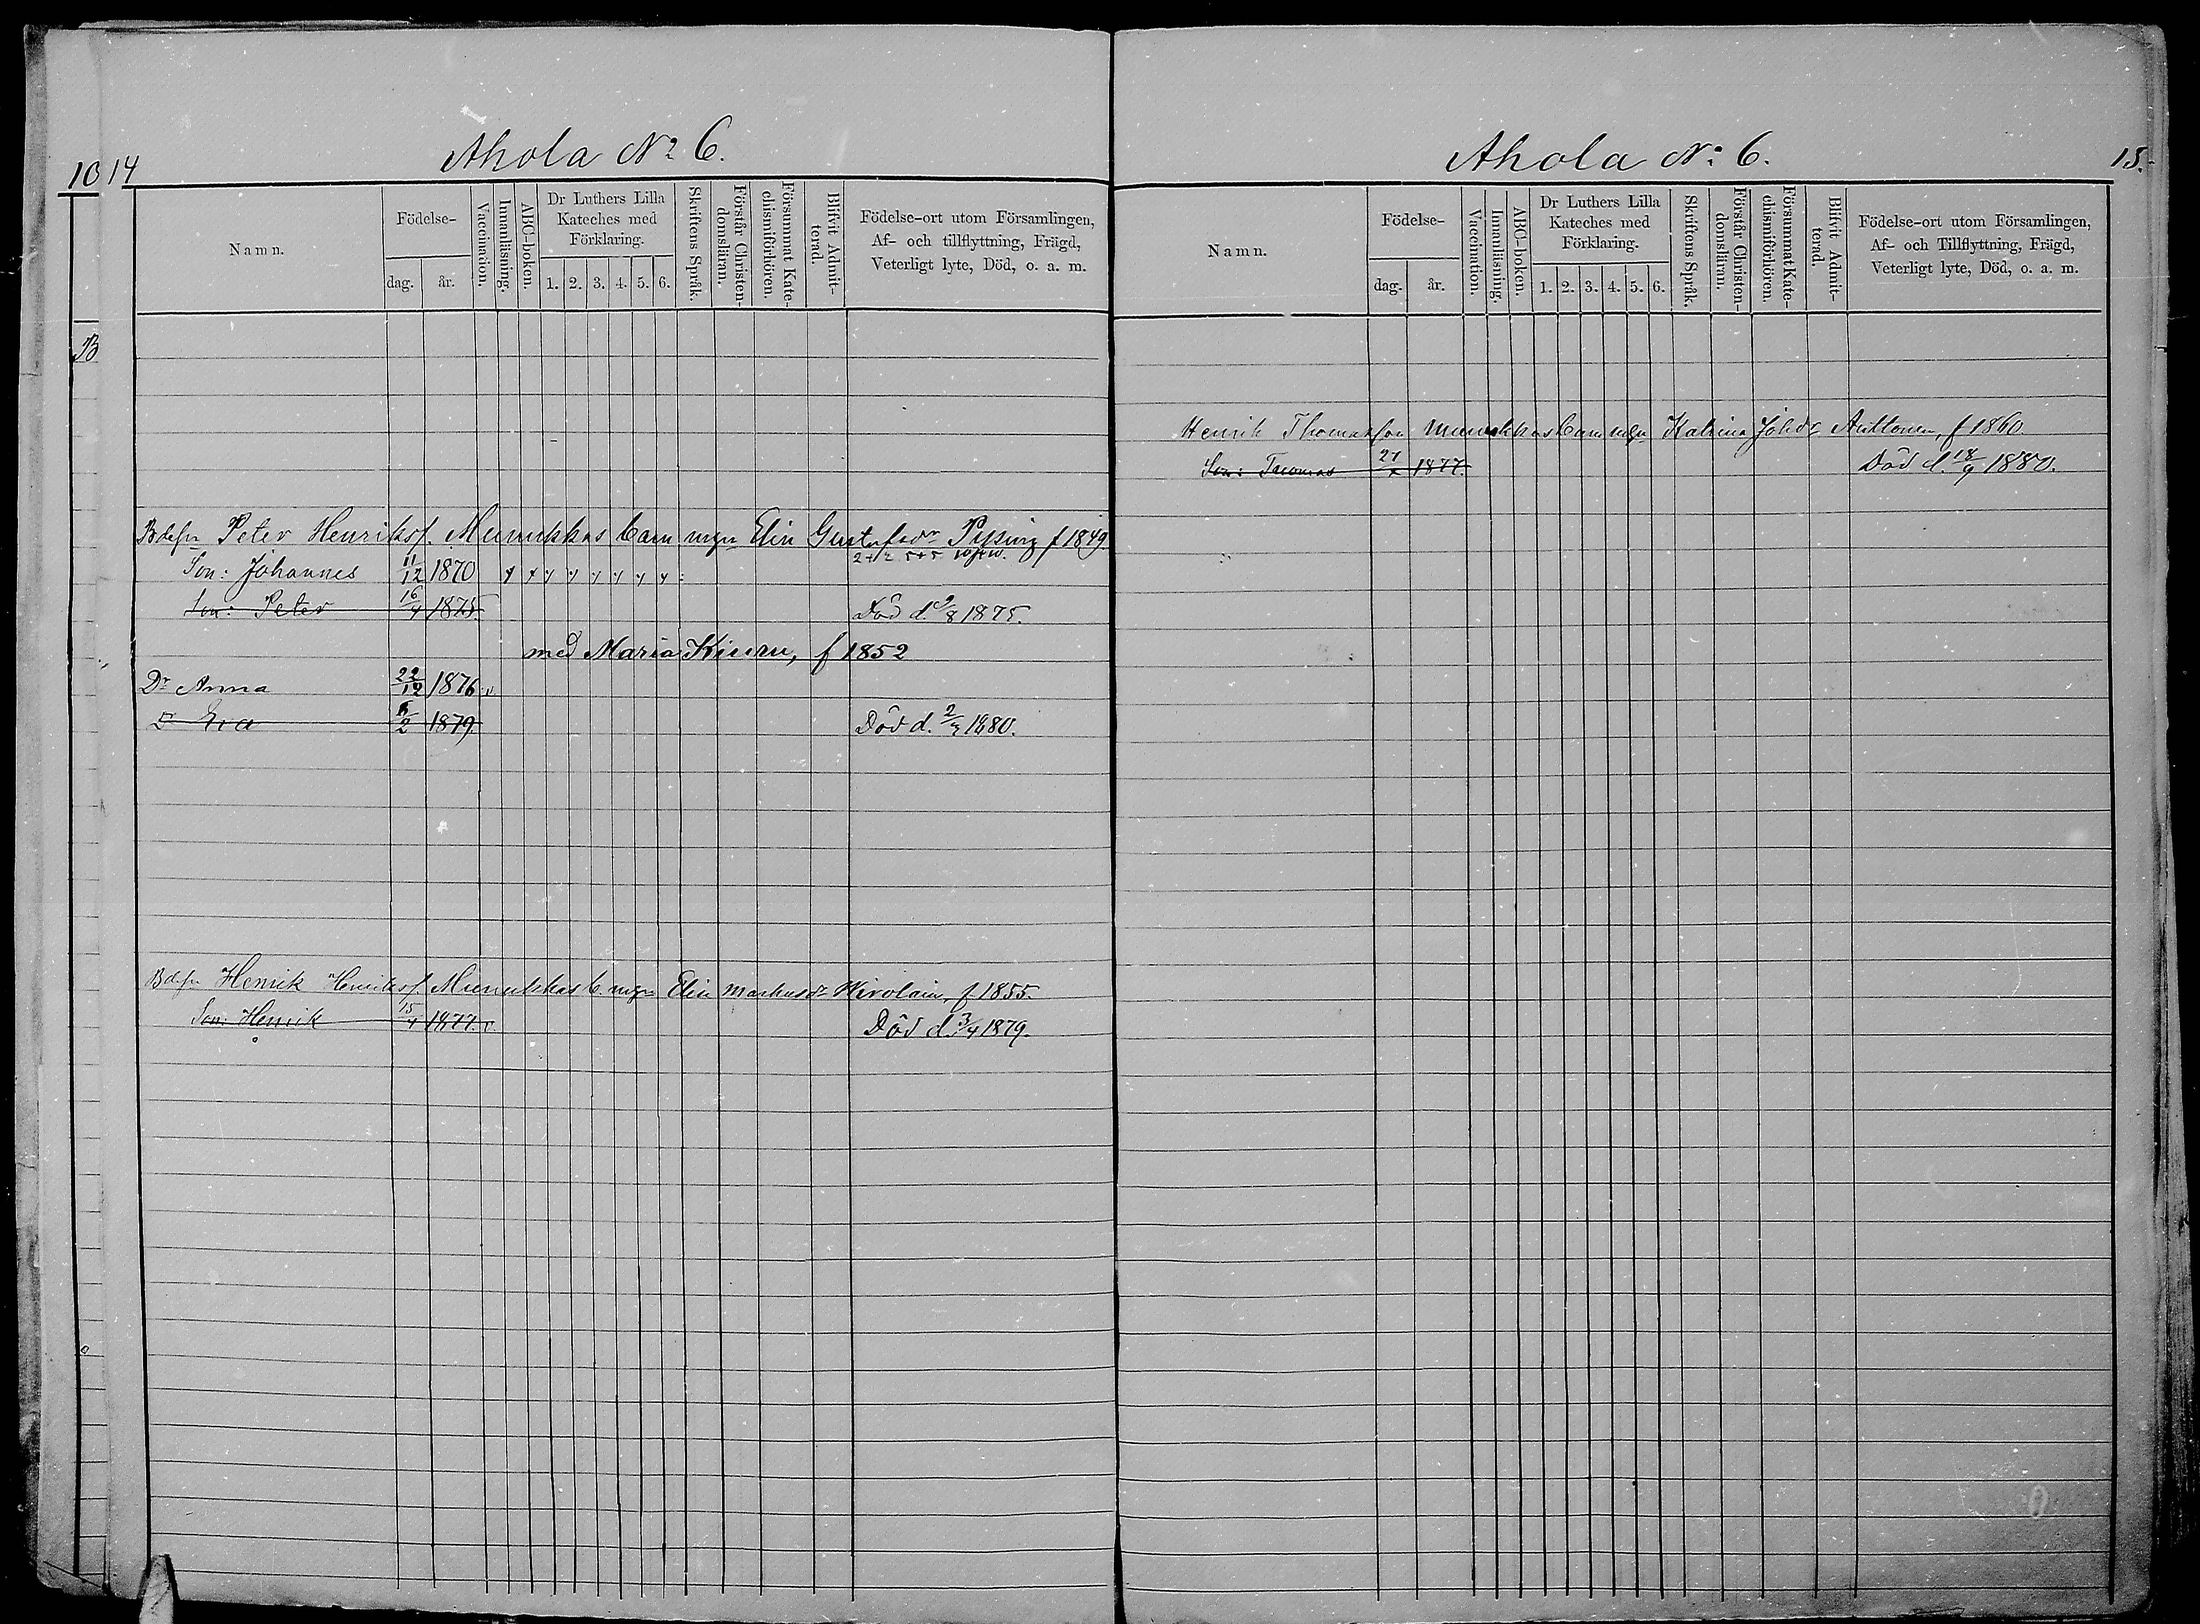 10 14
Ahola No 6.
Namn.
Födelse-
dag.
år.
Vaccination.
Innanläsning.
ABC-boken.
Dr Luthers Lilla
Kateches med
Förklaring.
1. 2. 3. 4. 5. 6.
Skriftens Språk.
Förstår Christen-
domsläran.
Försummat Kate-
chismiförhören.
Blifvit Admit-
terad.
Födelse-ort utom Församlingen,
Af- och tillflyttning, Frägd,
Veterligt lyte, Död, o. a. m.
B
Bdesn Peter Henriksf. Munukkas barn m Elin Gustafsdr f 1849.
Son: Johannes 11/12 1870
Son: Peter 16/4 1875. Död d. 9/8 1875.
med Maria Kiuru, f 1852
Dr Anna 22/12 1876
D Eva 5/2 1879. Död d. 2/3 1880.
Bdesn Henrik Henriksf. Munukkas b. m Elin Markusdr Hirolain, f 1855.
Son: Henrik 15/4 1877. Död d. 3/4 1879.
Ahola No 6.
15.
Namn.
Födelse-
dag.
år.
Vaccination.
Innanläsning.
ABC-boken.
Dr Luthers Lilla
Kateches med
Förklaring.
1. 2. 3. 4. 5. 6.
Skriftens Språk.
Förstår Christen-
domsläran.
Försummat Kate-
chismiförhören.
Blifvit Admit-
terad.
Födelse-ort utom Församlingen,
Af- och Tillflyttning, Frägd,
Veterligt lyte, Död, o. a. m.
Henrik Thomasson Munukkas barn m Katrina Johdr Anttonen, f 1860.
Son: Thomas 1877. Död d. 18/9 1880.